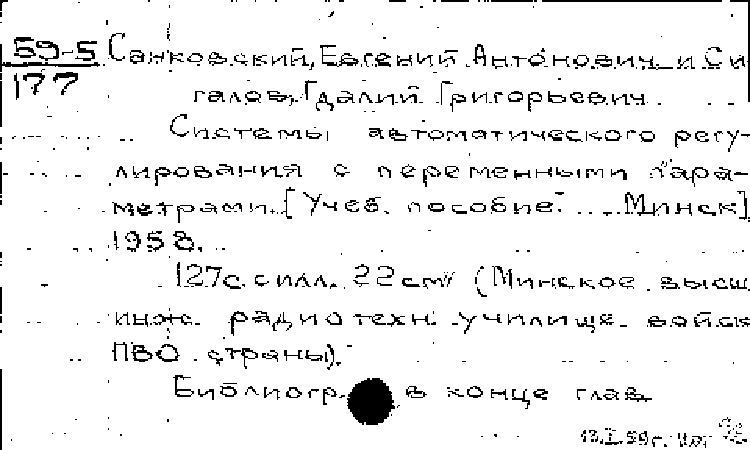 59-5
177
Санковский, Евгений Антонович и Си
галов, Гдалий Григорьевич.
Системы автоматического регу-
лирования с переменными пара-
метрами. [Учеб. пособие. ... Минск],
1958.
127 с. с илл. 22 см (Минское высш.
инж. радиотехн. училище войск
ПВО страны).
Библиогр. в конце глав.
13.I.59г.